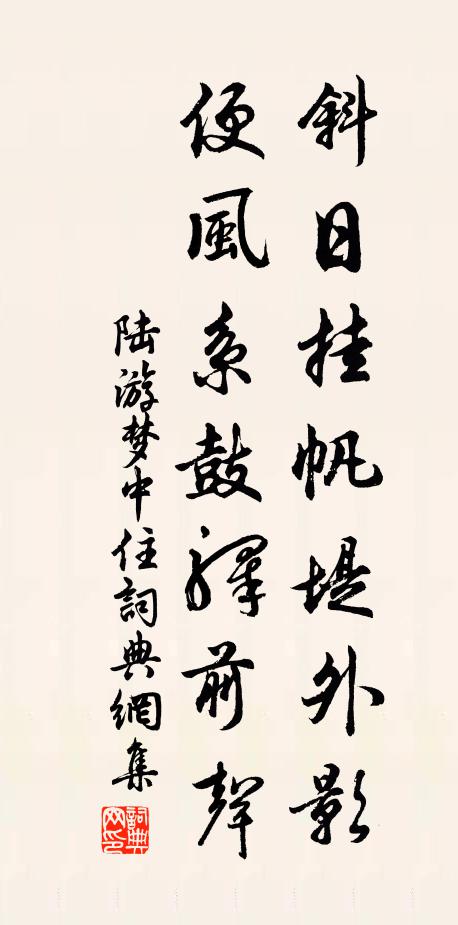 斜日挂帆堤外影
便风系鼓驛前聲
陆游梦中住詞典網集
詞典網印